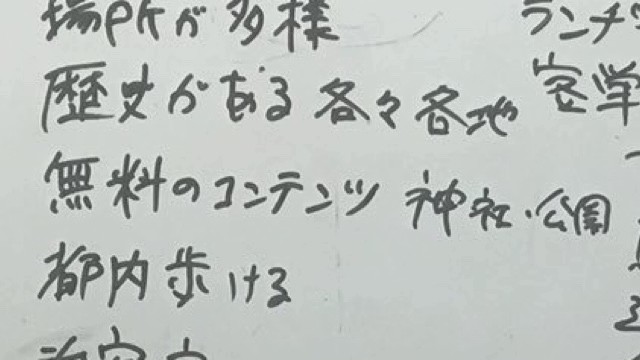 場所が多様
歴史がある 各々各地
無料のコンテンツ 神社・公園
都内歩ける
ランチ